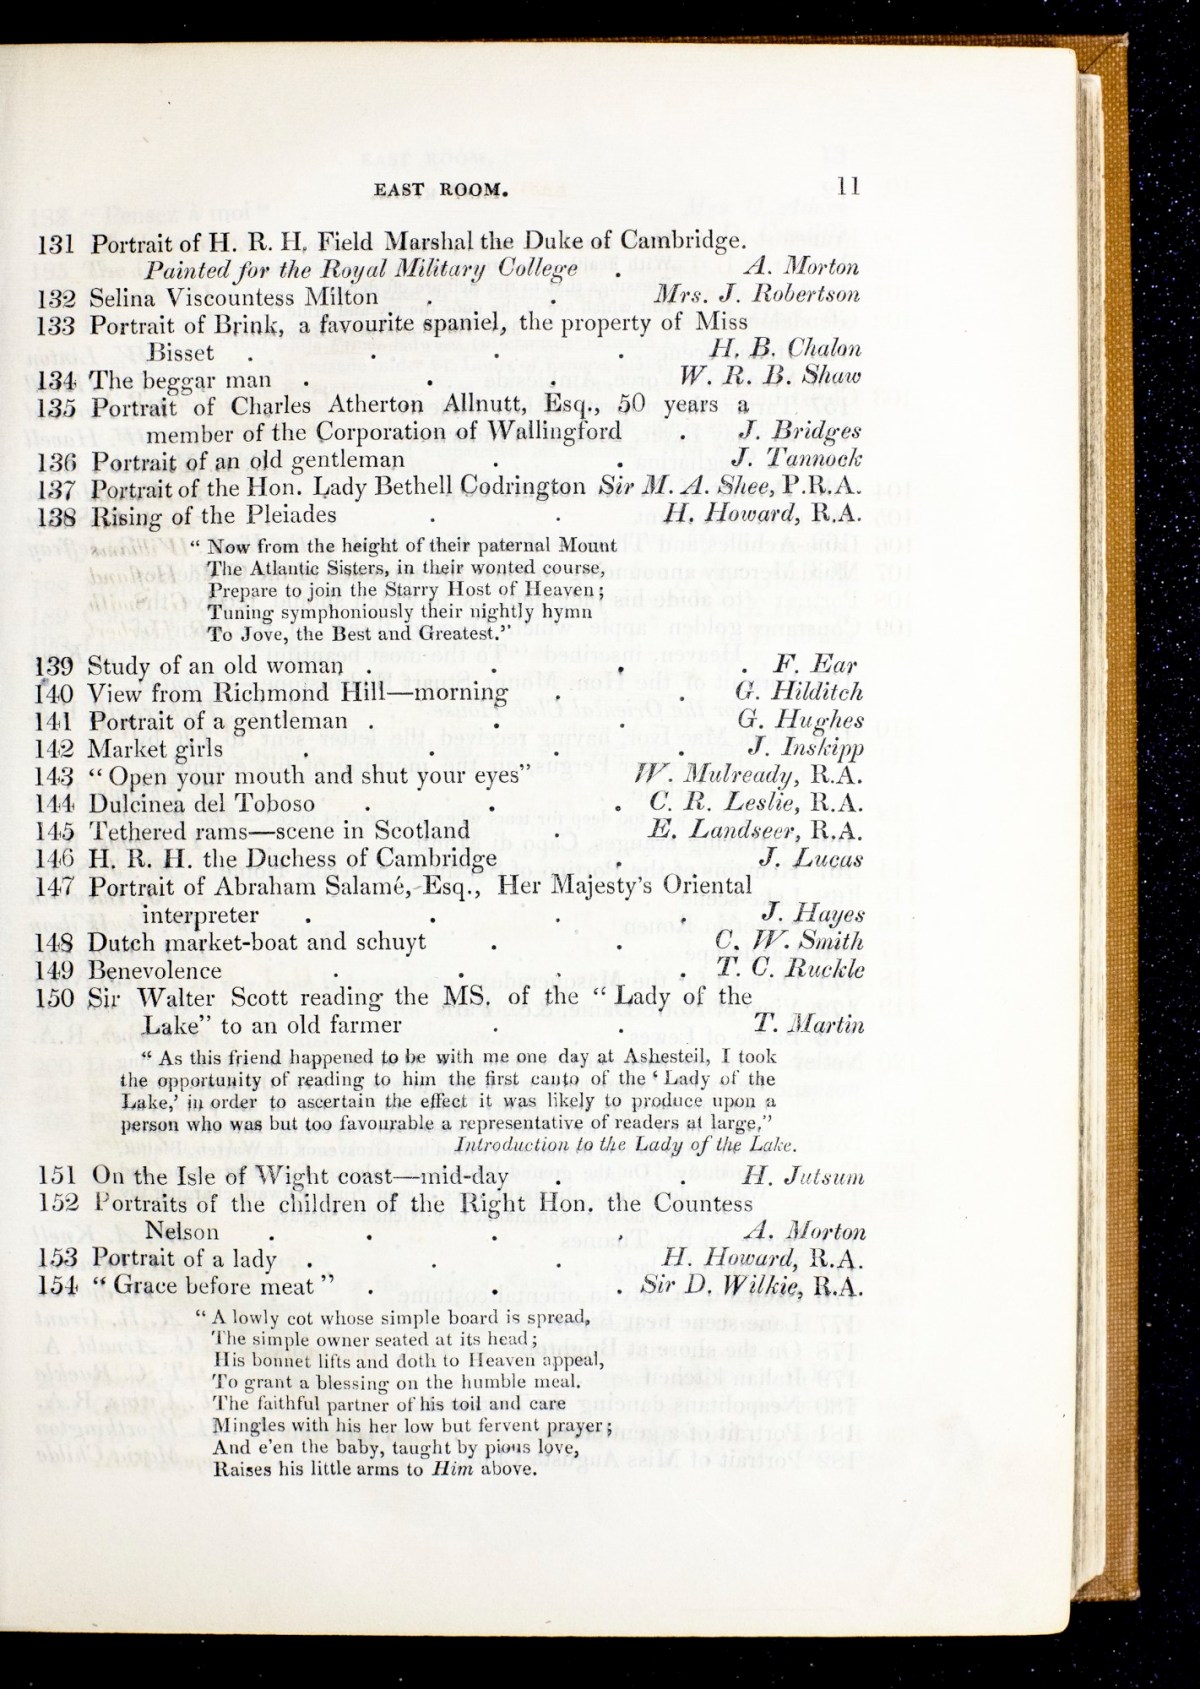 EAST ROOM. 11
131 Portrait of H. R. H. Field Marshal the Duke of Cambridge.
Painted for the Royal Military College . A. Morton
132 Selina Viscountess Milton . . Mrs. J. Robertson
133 Portrait of Brink, a favourite spaniel, the property of Miss
Bisset . . . . H. B. Chalon
134 The beggar man . . . W. R. B. Shaw
135 Portrait of Charles Atherton Allnutt, Esq., 50 years a
member of the Corporation of Wallingford . J. Bridges
136 Portrait of an old gentleman . . J. Tannock
137 Portrait of the Hon. Lady Bethell Codrington Sir M. A. Shee, P.R.A.
138 Rising of the Pleiades . . H. Howard, R.A.
“ Now from the height of their paternal Mount
The Atlantic Sisters, in their wonted course,
Prepare to join the Starry Host of Heaven;
Tuning symphoniously their nightly hymn
To Jove, the Best and Greatest.”
139 Study of an old woman . . . . F. Ear
140 View from Richmond Hill—morning . . G. Hilditch
141 Portrait of a gentleman . . . G. Hughes
142 Market girls . . . . J. Inskipp
143 “ Open your mouth and shut your eyes” W. Mulready, R.A.
144 Dulcinea del Toboso . . . C. R. Leslie, R.A.
145 Tethered rams—scene in Scotland . E. Landseer, R.A.
146 H. R. H. the Duchess of Cambridge . J. Lucas
147 Portrait of Abraham Salamé, Esq., Her Majesty’s Oriental
interpreter . . . . J. Hayes
148 Dutch market-boat and schuyt . . C. W. Smith
149 Benevolence . . . . T. C. Ruckle
150 Sir Walter Scott reading the MS. of the “ Lady of the
Lake” to an old farmer . . T. Martin
“ As this friend happened to be with me one day at Ashesteil, I took
the opportunity of reading to him the first canto of the ‘ Lady of the
Lake,’ in order to ascertain the effect it was likely to produce upon a
person who was but too favourable a representative of readers at large.”
Introduction to the Lady of the Lake.
151 On the Isle of Wight coast—mid-day . . H. Jutsum
152 Portraits of the children of the Right Hon. the Countess
Nelson . . . . A. Morton
153 Portrait of a lady . . . H. Howard, R.A.
154 “ Grace before meat ” . . . Sir D. Wilkie, R.A.
“ A lowly cot whose simple board is spread,
The simple owner seated at its head;
His bonnet lifts and doth to Heaven appeal,
To grant a blessing on the humble meal.
The faithful partner of his toil and care
Mingles with his her low but fervent prayer;
And e'en the baby, taught by pious love,
Raises his little arms to Him above.